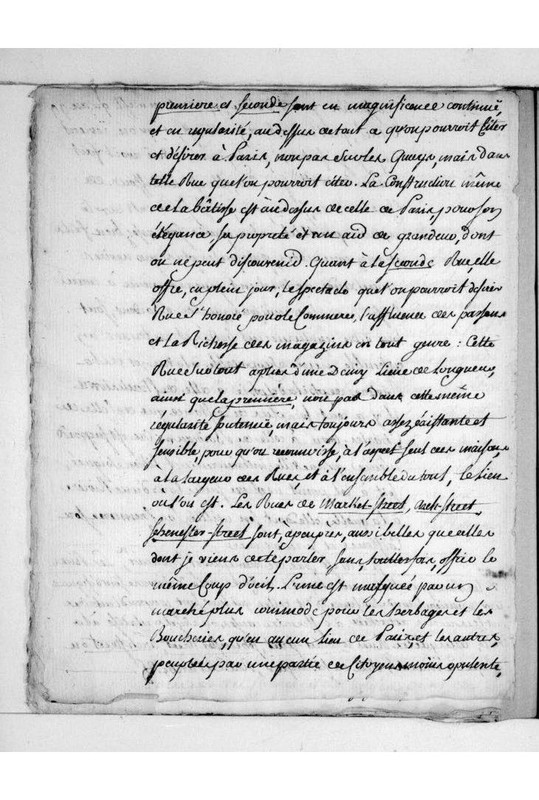 premiere et seconde sont en magnificence continuë,
et en regularité, audessus de tout ce qu'on pourroit Citer
et désirer à Paris, non pas sur les Quays, mais dans
telle Rue que l'on pourroit citer. La Construction même
de la bâtisse est audessus de celle de Paris pour son
élégance, sa propreté et un air de grandeur, dont
on ne peut disconvenir. Quant à la seconde Rue, elle
offre, en plein jour, le spectacle que l'on pourroit desirer
Rue St honoré pour le Commerce, l'affluence des passans
et la Richesse des magazins en tout genre : Cette
Rue surtout a plus d'une demy Lieue de Longueur,
ainsi que la premiere, non pas dans cette même
régularité soutenuë, mais toujours assez existante et
sensible, pour qu'on reconnoisse, à l'aspect seul des maisons
à la largeur des Rues, et à l'ensemble du tout, le Lieu
où l'on est. Les Rues de Market-Street, Arch-Street
Chenester-Street sont, à peu près, aussi belles que celles
dont je viens de te parler, sans toutefois offrir le
même Coup d'oeil. L'une est masquée par un
marché plus commode pour les herbages et les
Boucheries, qu'en aucun lieu de Paris, et les autres,
peuplées par une partie de Citoyens moins opulente,